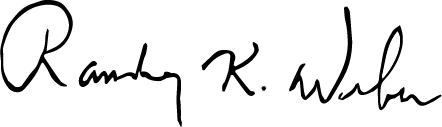 Randy K. Weber